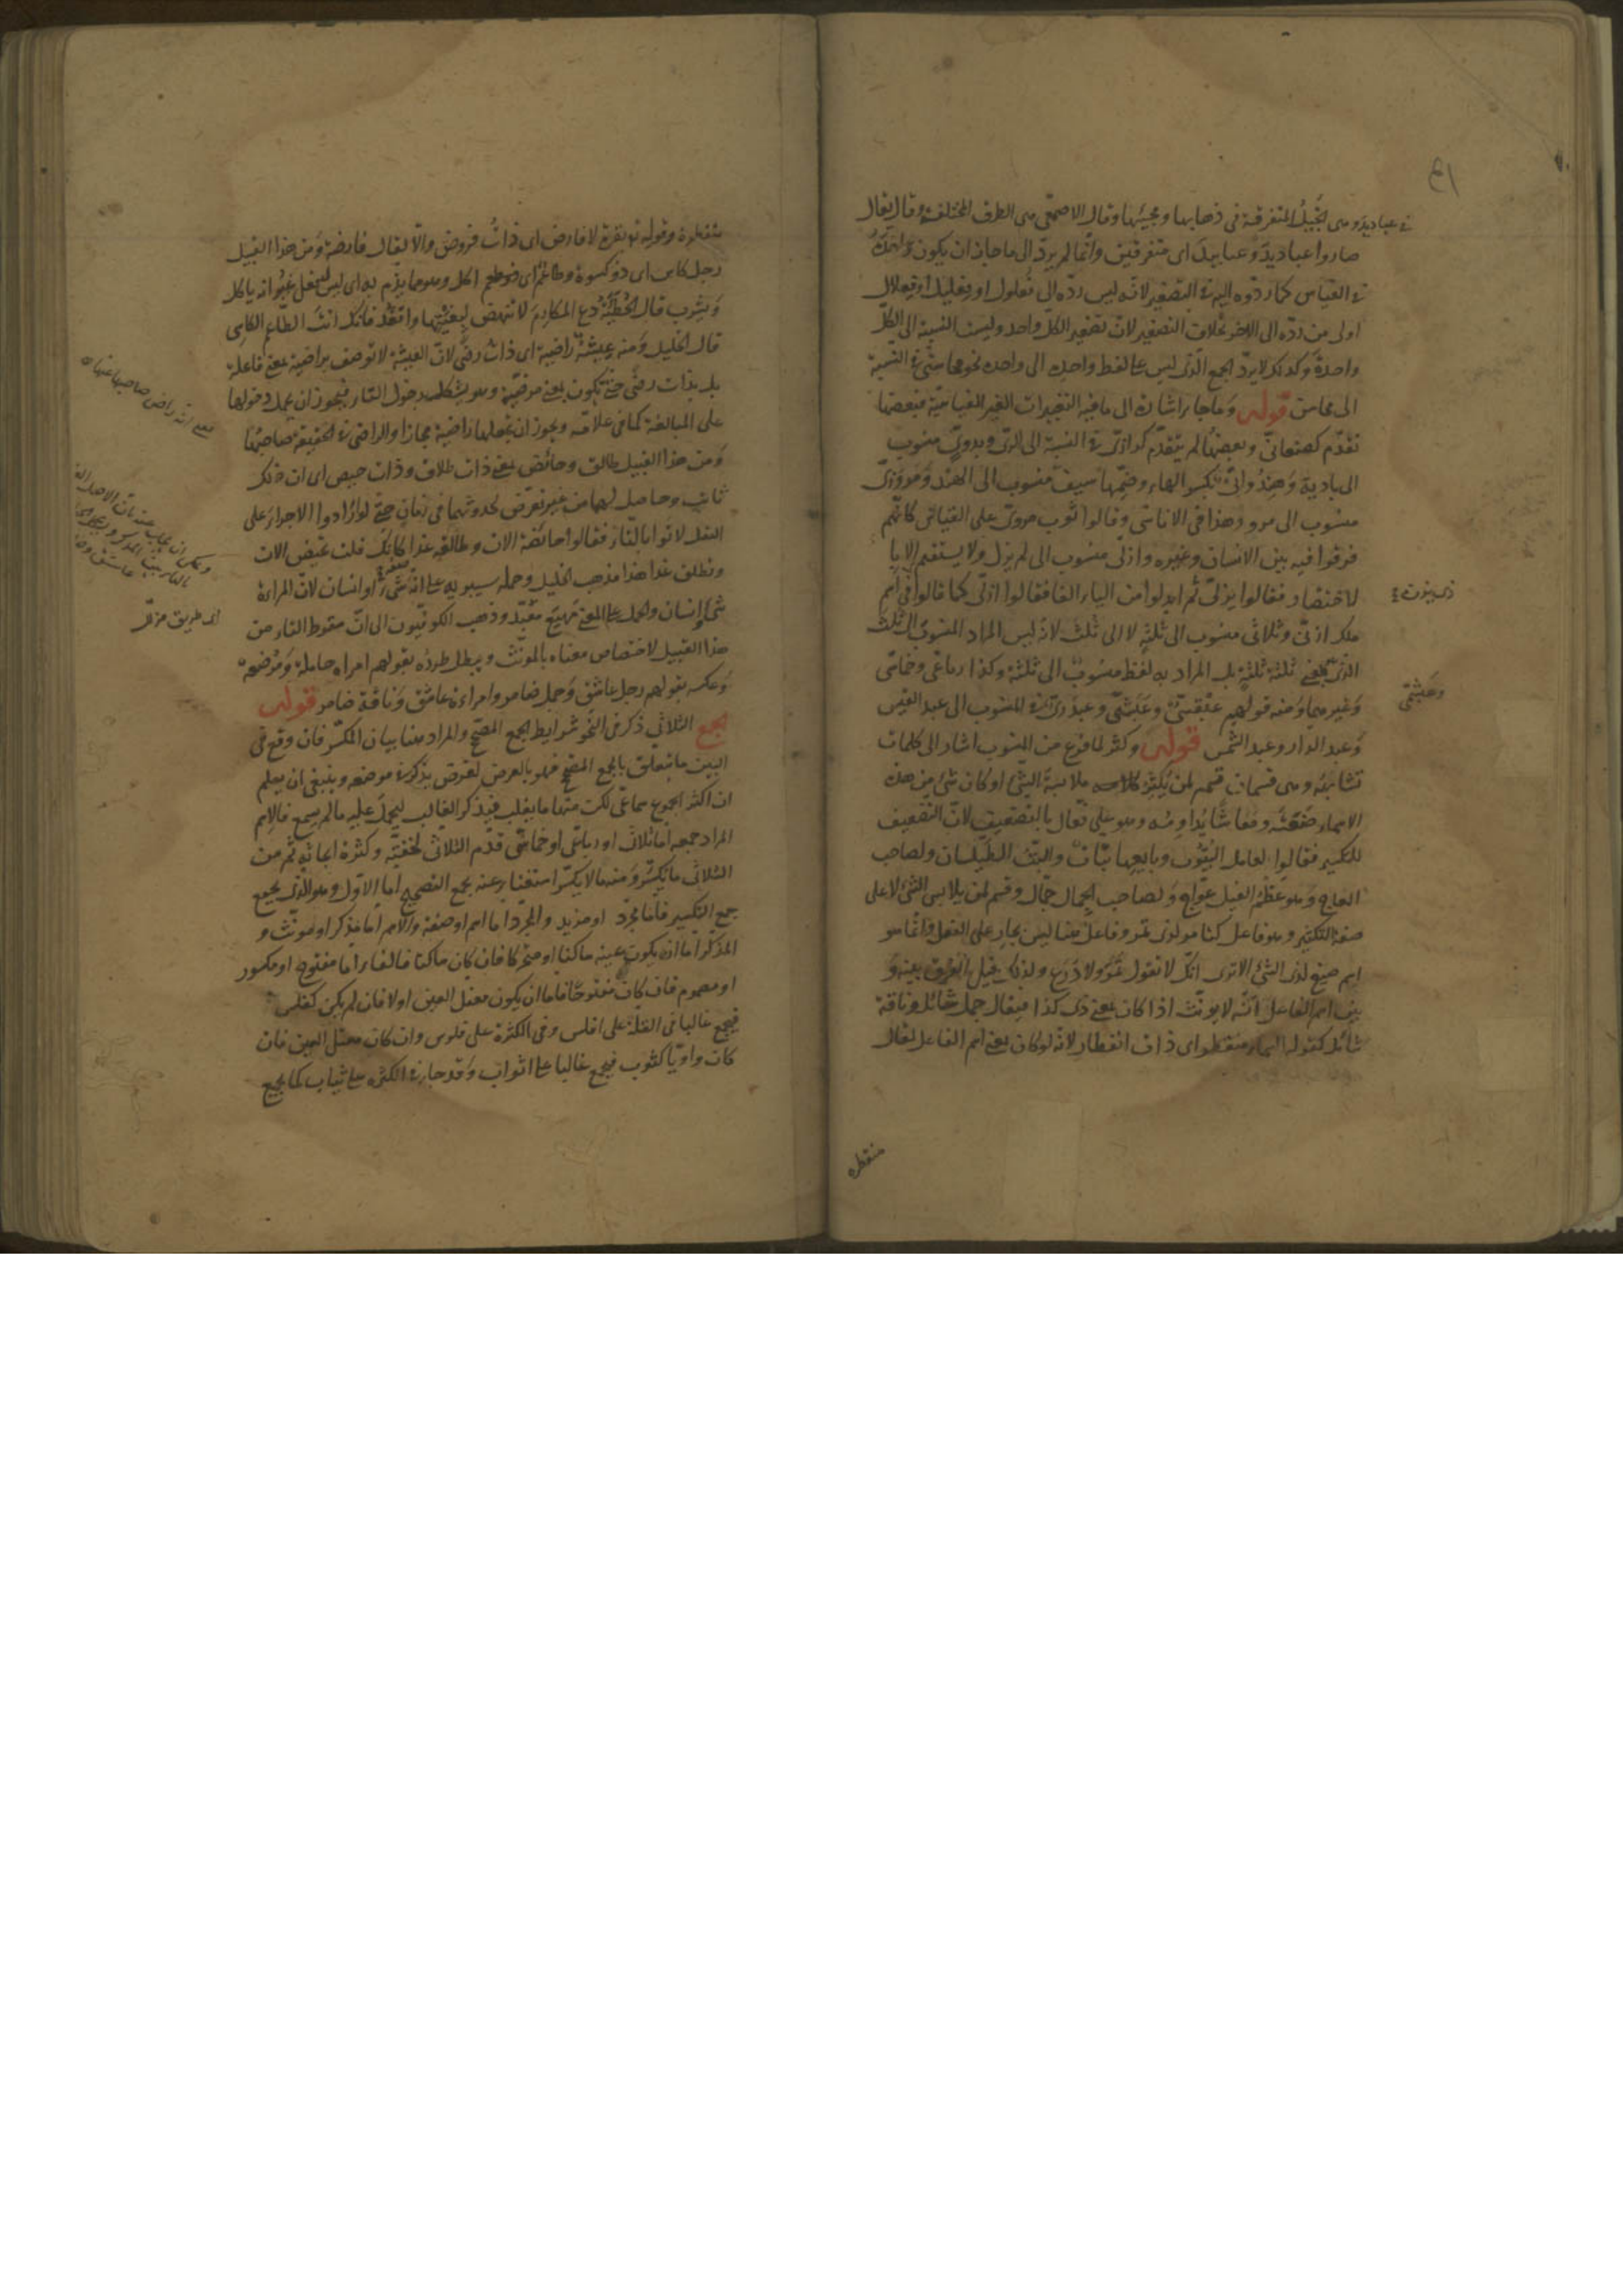 في عباديد وهى الخيل المتفرقة فى ذهابها ومجيئها وقال الاصمعى هى الطرق المختلفة وقال يقال
صاروا عباديد وعبابيد اى متفرقين وانما لم يرد الى ما جاز ان يكون
فى القياس كما ردوه اليه فى التصغير لانه ليس رده الى فعلول او فعليل او فعلال
اولى من رده الى الاخر بخلاف التصغير لان تصغير الكل واحد وليست النسبة الى الكل
واحدة وكذلك لا يرد الجمع الذى ليس على لفظ واحده الى واحده نحو محاسنى فى النسبة
الى محاسن قوله وما جاء اشارة الى ما فيه التغييرات الغير القياسية فبعضها
تقدم كصنعانى وبعضها لم يتقدم كرازى فى النسبة الى الرى وبدوى منسوب
الى بادية وهندوانى بكسر الهاء وضمها سيف منسوب الى الهند ومروزى
منسوب الى مرو وهذا فى الاناسى وقالوا ثوب مروى على القياس كانهم
فرقوا فيه بين الانسان وغيره وازلى منسوب الى لم يزل ولا يستقيم الا با
لاختصار فقالوا يزلى ثم ابدلوا من الياء الفا فقالوا ازلى كما قالوا فى
ملك ازنى وثلاثى منسوب الى ثلثة لا الى ثلث لانه ليس المراد المنسوب الى ثلث
الذى بمعنى ثلثة ثلثة بل المراد به لفظ منسوب الى ثلثة وكذا رباعى وخماسى
وغيرهما ومنه قولهم عبقسى وعبشمى وعبدرى فى المنسوب الى عبد القيس
وعبد الدار وعبد الشمس قوله وكثر لما فرغ من المنسوب اشار الى كلمات
تشابهه وهى قسمان قسم لمن يكثر ملابسة الشئ او كان شئ من هذه
الاسماء صنعته ومعاشا يداومه وهو على فعال بالتضعيف لان التضعيف
للتكثير فقالوا لعامل البتوت وبايعها بتات والبت الطيلسان ولصاحب
العاج وهو عظم الفيل عواج ولصاحب الجمال جمال وقسم لمن يلابس الشئ لا على
صفة التكثير وهو فاعل كتامر لذى تمر وفاعل هنا ليس بجار على الفعل وانما هو
اسم صيغ لذى الشئ الا ترى انك لا تقول تمر ولا درع ولذلك قيل الفرق بينه و
بين اسم الفاعل انه لا يونث اذا كان بمعنى ذى كذا فيقال جمل شائل وناقة
شائل كقوله السماء منفطر اى ذات انفطار لانه لو كان بمعنى اسم الفاعل لقال
منفطرة
ذى يزن
وعبشمى
منفطرة وقوله تع بقرة لا فارض اى ذات فروض والا لقال فارضة ومن هذا القبيل
رجل كاس اى ذو كسوة وطاعم اى ذو طعم اكل وهو مما يذم به اى ليس له فعل غير انه ياكل
ويشرب قال الحطيئة دع المكارم لا تنهض لبغيتها واقعد فانك انت الطاعم الكاسى
قال الخليل ومنه عيشة راضية اى ذات رضى لان العيشة لا توصف براضية بمعنى فاعلة
بل بذات رضى حتى تكون بمعنى مرضية وهو يشكل بدخول التاء فيجوز ان يحمل دخولها
على المبالغة كما فى علامة ويجوز ان نجعلها راضية مجازا والراضى فى الحقيقة صاحبها
ومن هذا القبيل طالق وحائض بمعنى ذات طلاق وذات حيض اى ان ذلك
ثابت وحاصل لهما من غير تعرض لحدوثهما فى زمان حتى لو ارادوا الاجراء على
الفعل لاتوا بالتاء فقالوا حائضة الان وطالقة غدا كانك قلت تحيض الان
وتطلق غدا هذا مذهب الخليل وحمله سيبويه على انه شئ او انسان لان المراة
شئ وانسان والحمل على المعنى وذهب الكوفيون الى ان سقوط التاء من
هذا القبيل لاختصاص معناه بالمونث ويبطل طرده بقولهم امراه حاملة ومرضعة
وعكسه بقولهم رجل عاشق وجمل ضامر وامراة عاشق وناقة ضامر قوله
الجمع الثلاثى ذكر فى النحو شرايط الجمع المصحح والمراد هنا بيان المكسر فان وقع فى
البين ما يتعلق بالجمع المصحح فهو بالعرض لغرض يذكر فى موضعه وينبغى ان يعلم
ان اكثر الجموع سماعى لكن منها ما يغلب فيذكر الغالب ليحمل عليه ما لم يسمع فالاسم
المراد جمعه اما ثلاثى او رباعى او خماسى قدم الثلاثى لخفته وكثرة ابحاثه ثم من
الثلاثى ما يكسر ومنه ما لا يكسر استغناء عنه بجمع التصحيح اما الاول وهو الذى يجمع
جمع التكسير فاما مجرد او مزيد والمجرد اما اسم او صفة والاسم اما مذكر او مونث و
المذكر اما ان يكون عينه ساكنا او متحركا فان كان ساكنا فالفاء اما مفتوح او مكسور
او مضموم فان كان مفتوحا فاما ان يكون معتل العين او لا فان لم يكن كفلس
فيجمع غالبا فى القلة على افلس وفى الكثرة على فلوس وان كان معتل العين فان
كان واويا كثوب فيجمع غالبا على اثواب وقد جاء فى الكثرة على ثياب كما يجمع
راض صاحبها
اى طريق مذلل